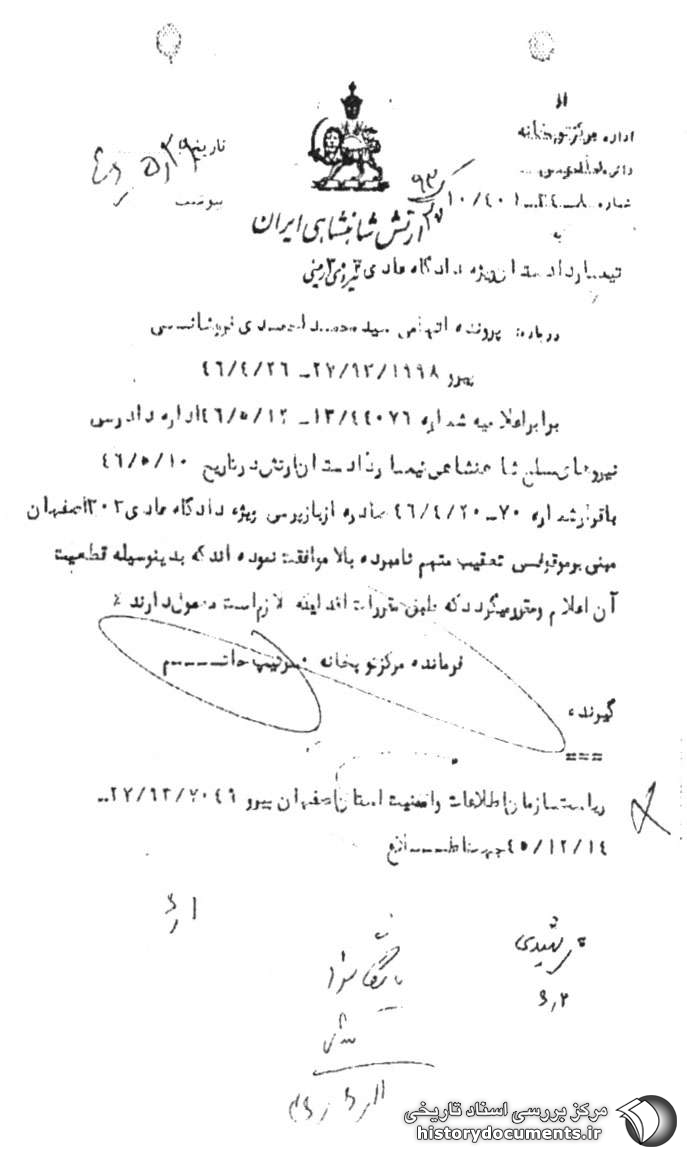 از
اداره مرکز توپخانه
دایره
شماره
۱۰/۴۰۱
تاریخ
پیوست
ارتش شاهنشاهی ایران
به
تیمسار دادستان ویژه دادگاه عادی نیروی زمینی
درباره: پرونده اتهامی سید محمد احمدی فروشانی
پیرو ۲۷/۹۲/۱۱۹۸ـ ۴۶/۴/۲۶
برابر اعلامیه شماره ۱۳/۴۴۰۷۶ـ ۴۶/۵/۱۲ اداره دادرسی
نیروهای مسلح شاهنشاهی تیمسار دادستان ارتش در تاریخ ۴۶/۵/۱۰
باقرار شماره ۷۰ـ ۴۶/۴/۲۰ صادره از بازپرسی ویژه دادگاه عادی ۲۰۳ اصفهان
مبنی بر موقوفی تعقیب متهم نامبرده بالا موافقت نموده اند که بدینوسیله قطعیت
آن اعلام و مقرر میگردد که طبق مقررات اقداماتیکه لازم است معمول دارند ٪
فرمانده مرکز توپخانه ـ سرتیپ حاتم
گیرنده،
===
ریاست سازمان اطلاعات و امنیت استان اصفهان پیرو ۲۷/۹۲/۷۰۴۹ـ
۴۵/۱۲/۱۴ جهت اطلاع
بایگانی شود
مرکز بررسی اسناد تاریخی
historydocuments.ir